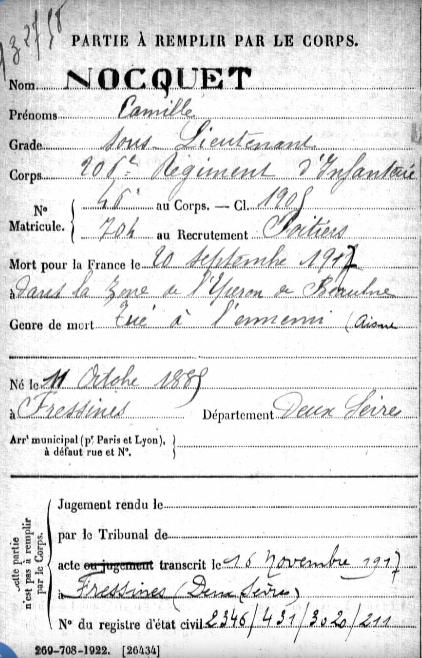 93278
PARTIE À REMPLIR PAR LE CORPS.
Nom NOCQUET
Prénoms Camille
Grade sous-Lieutenant
Corps 206e Régiment d'Infanterie
No Matricule. { 46e au Corps. — Cl. 1905
704 au Recrutement Poitiers
Mort pour la France le 20 septembre 1917
à dans la Zone de l'Yperon de
Genre de mort Tué à l'ennemi (Aisne
Né le 11 Octobre 1885
à Fressines Département Deux Sèvres
Arrt municipal (pr Paris et Lyon), à défaut rue et No. }
Cette partie n'est pas à remplir par le Corps.
Jugement rendu le
par le Tribunal de
acte ou jugement transcrit le 16 Novembre 1917
à Fressines (Deux Sèvres)
No du registre d'état civil 2346/431/3020/211
269-708-1922. [26434]